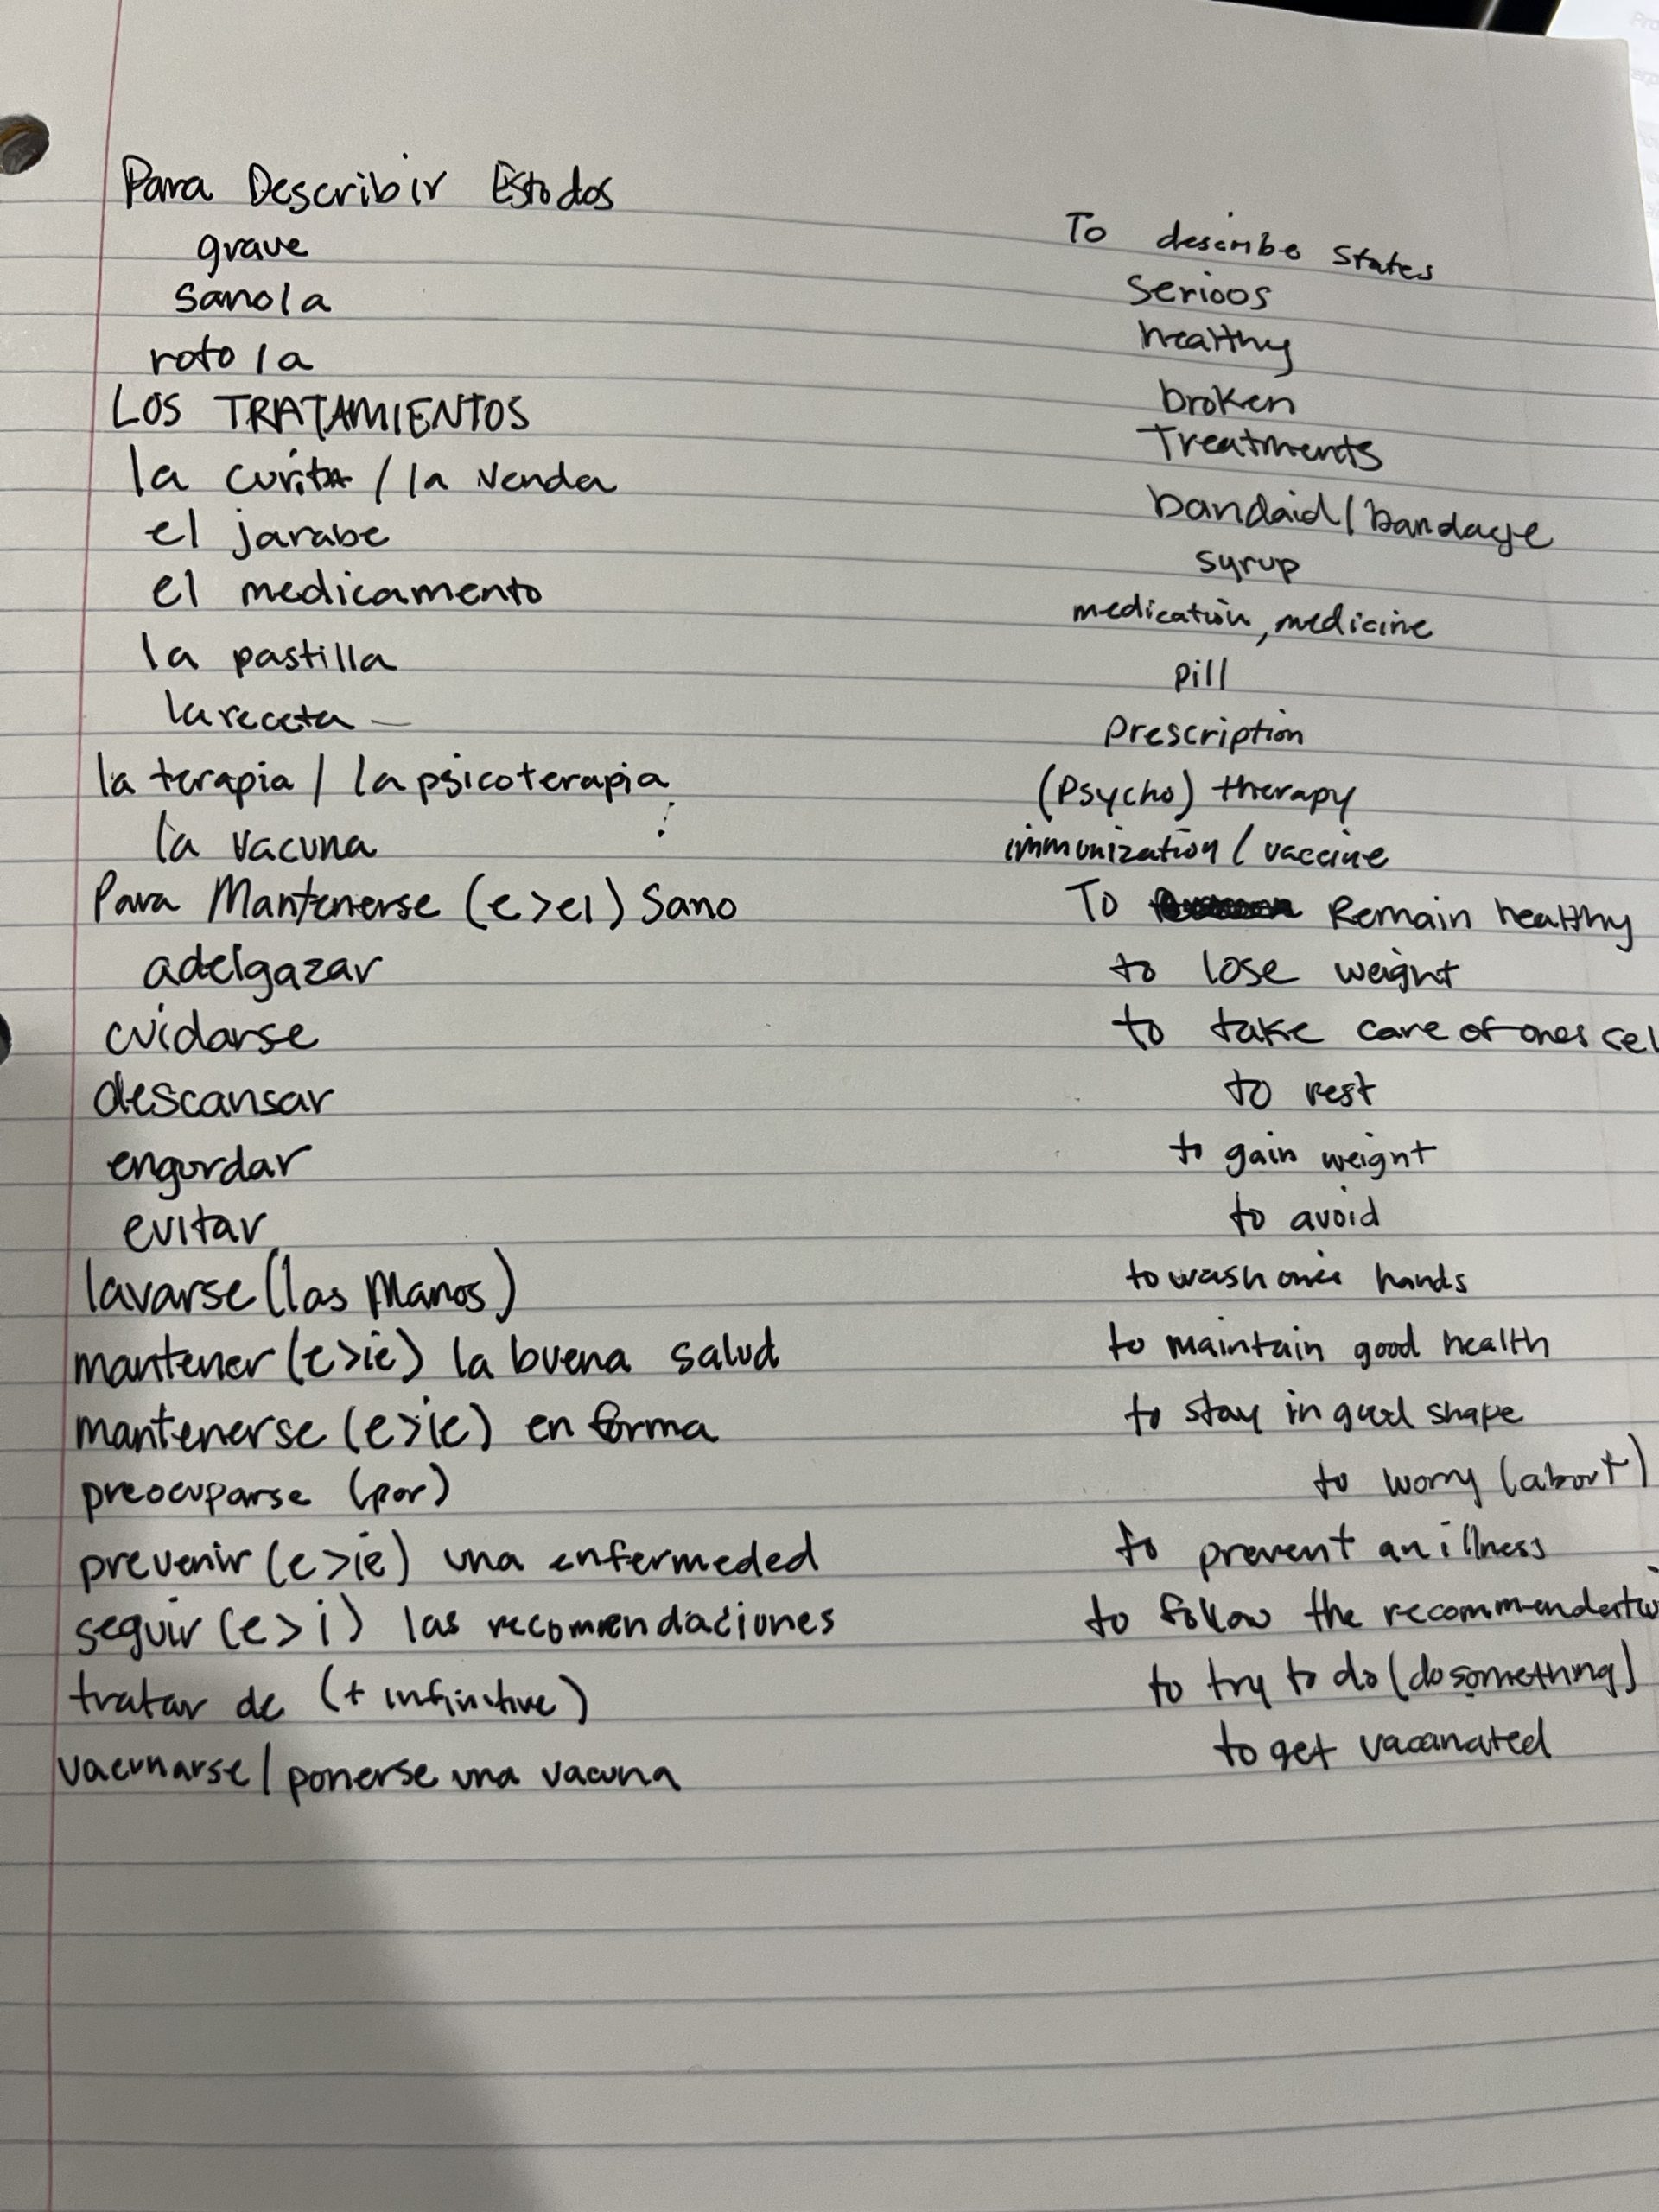 Para Describir Estodos
To describe States
grave
serioos
sano/a
healthy
roto/a
broken
LOS TRATAMIENTOS
Treatments
la curita / la venda
bandaid/bandage
el jarabe
syrup
el medicamento
medication, medicine
la pastilla
pill
la receta
Prescription
la terapia / la psicoterapia
(Psycho) therapy
la vacuna
immunization / vaccine
Para Mantenerse (e>el) Sano
To Remain healthy
adelgazar
to lose weight
cuidarse
to take care of ones sel
descansar
to rest
engordar
to gain weight
evitar
to avoid
lavarse (las Manos)
to wash ones hands
mantener (e>ie) la buena salud
to maintain good health
mantenerse (e>ie) en forma
to stay in good shape
preocuparse (por)
to worry (about)
prevenir (e>ie) una enfermeded
to prevent an illness
seguir (e>i) las recomendaciones
to follow the recommendatio
tratar de (+ infinitive)
to try to do (do something)
vacunarse / ponerse una vacuna
to get vaccanated